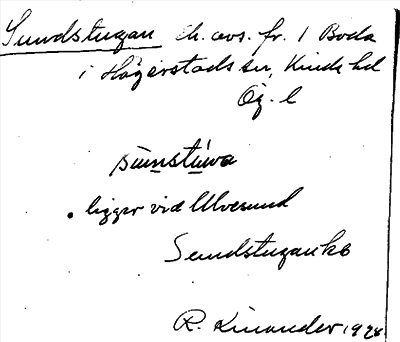 Sundstugan th. avs. fr. 1 Boda
i Hägerstads sn, Kinda hd
Ög. l
sùnstùwa
. ligger vid Ulvesund
Sundstugan kb
R. Kinander 1928